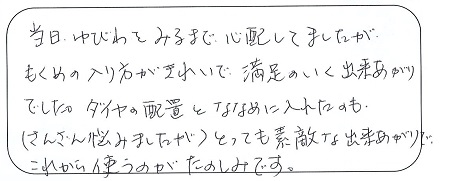 当日、ゆびわをみるまで心配してましたが
もくめの入り方がきれいで、満足のいく出来あがり
でした。ダイヤの配置とななめに入れたのも、
(さんざん悩みましたが)とっても素敵な出来あがりで、
これから使うのがたのしみです。